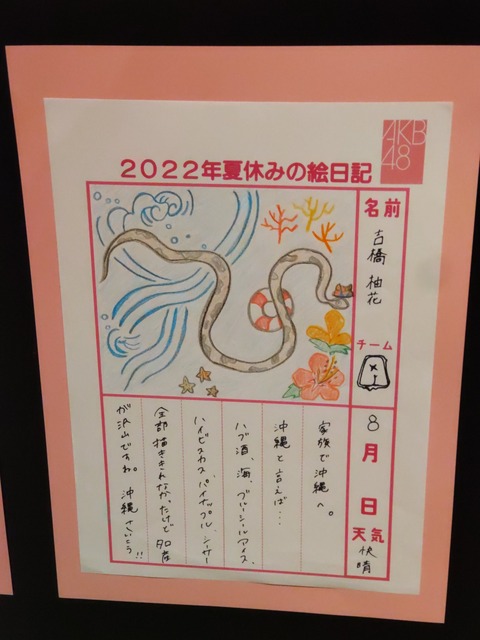 AKB
48
2022年夏休みの絵日記
名前
吉橋 柚花
チーム
8月 日
天気
快晴
家族で沖縄へ。
沖縄と言えば...
ハブ酒、海、ブルーシールアイス、
ハイビスカス、パイナップル、シーサー
全部描ききれなかったけど名産
が沢山ですね。沖縄さいこう!!